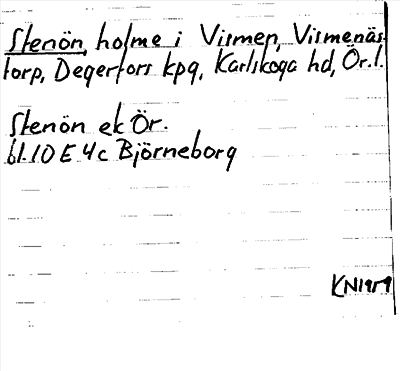 Stenön, holme i Vismen, Vismenäs-
torp, Degerfors kpg, Karlskoga hd, Ör. l.
Stenön ek Ör.
bl. 10 E 4c Björneborg
KN1959